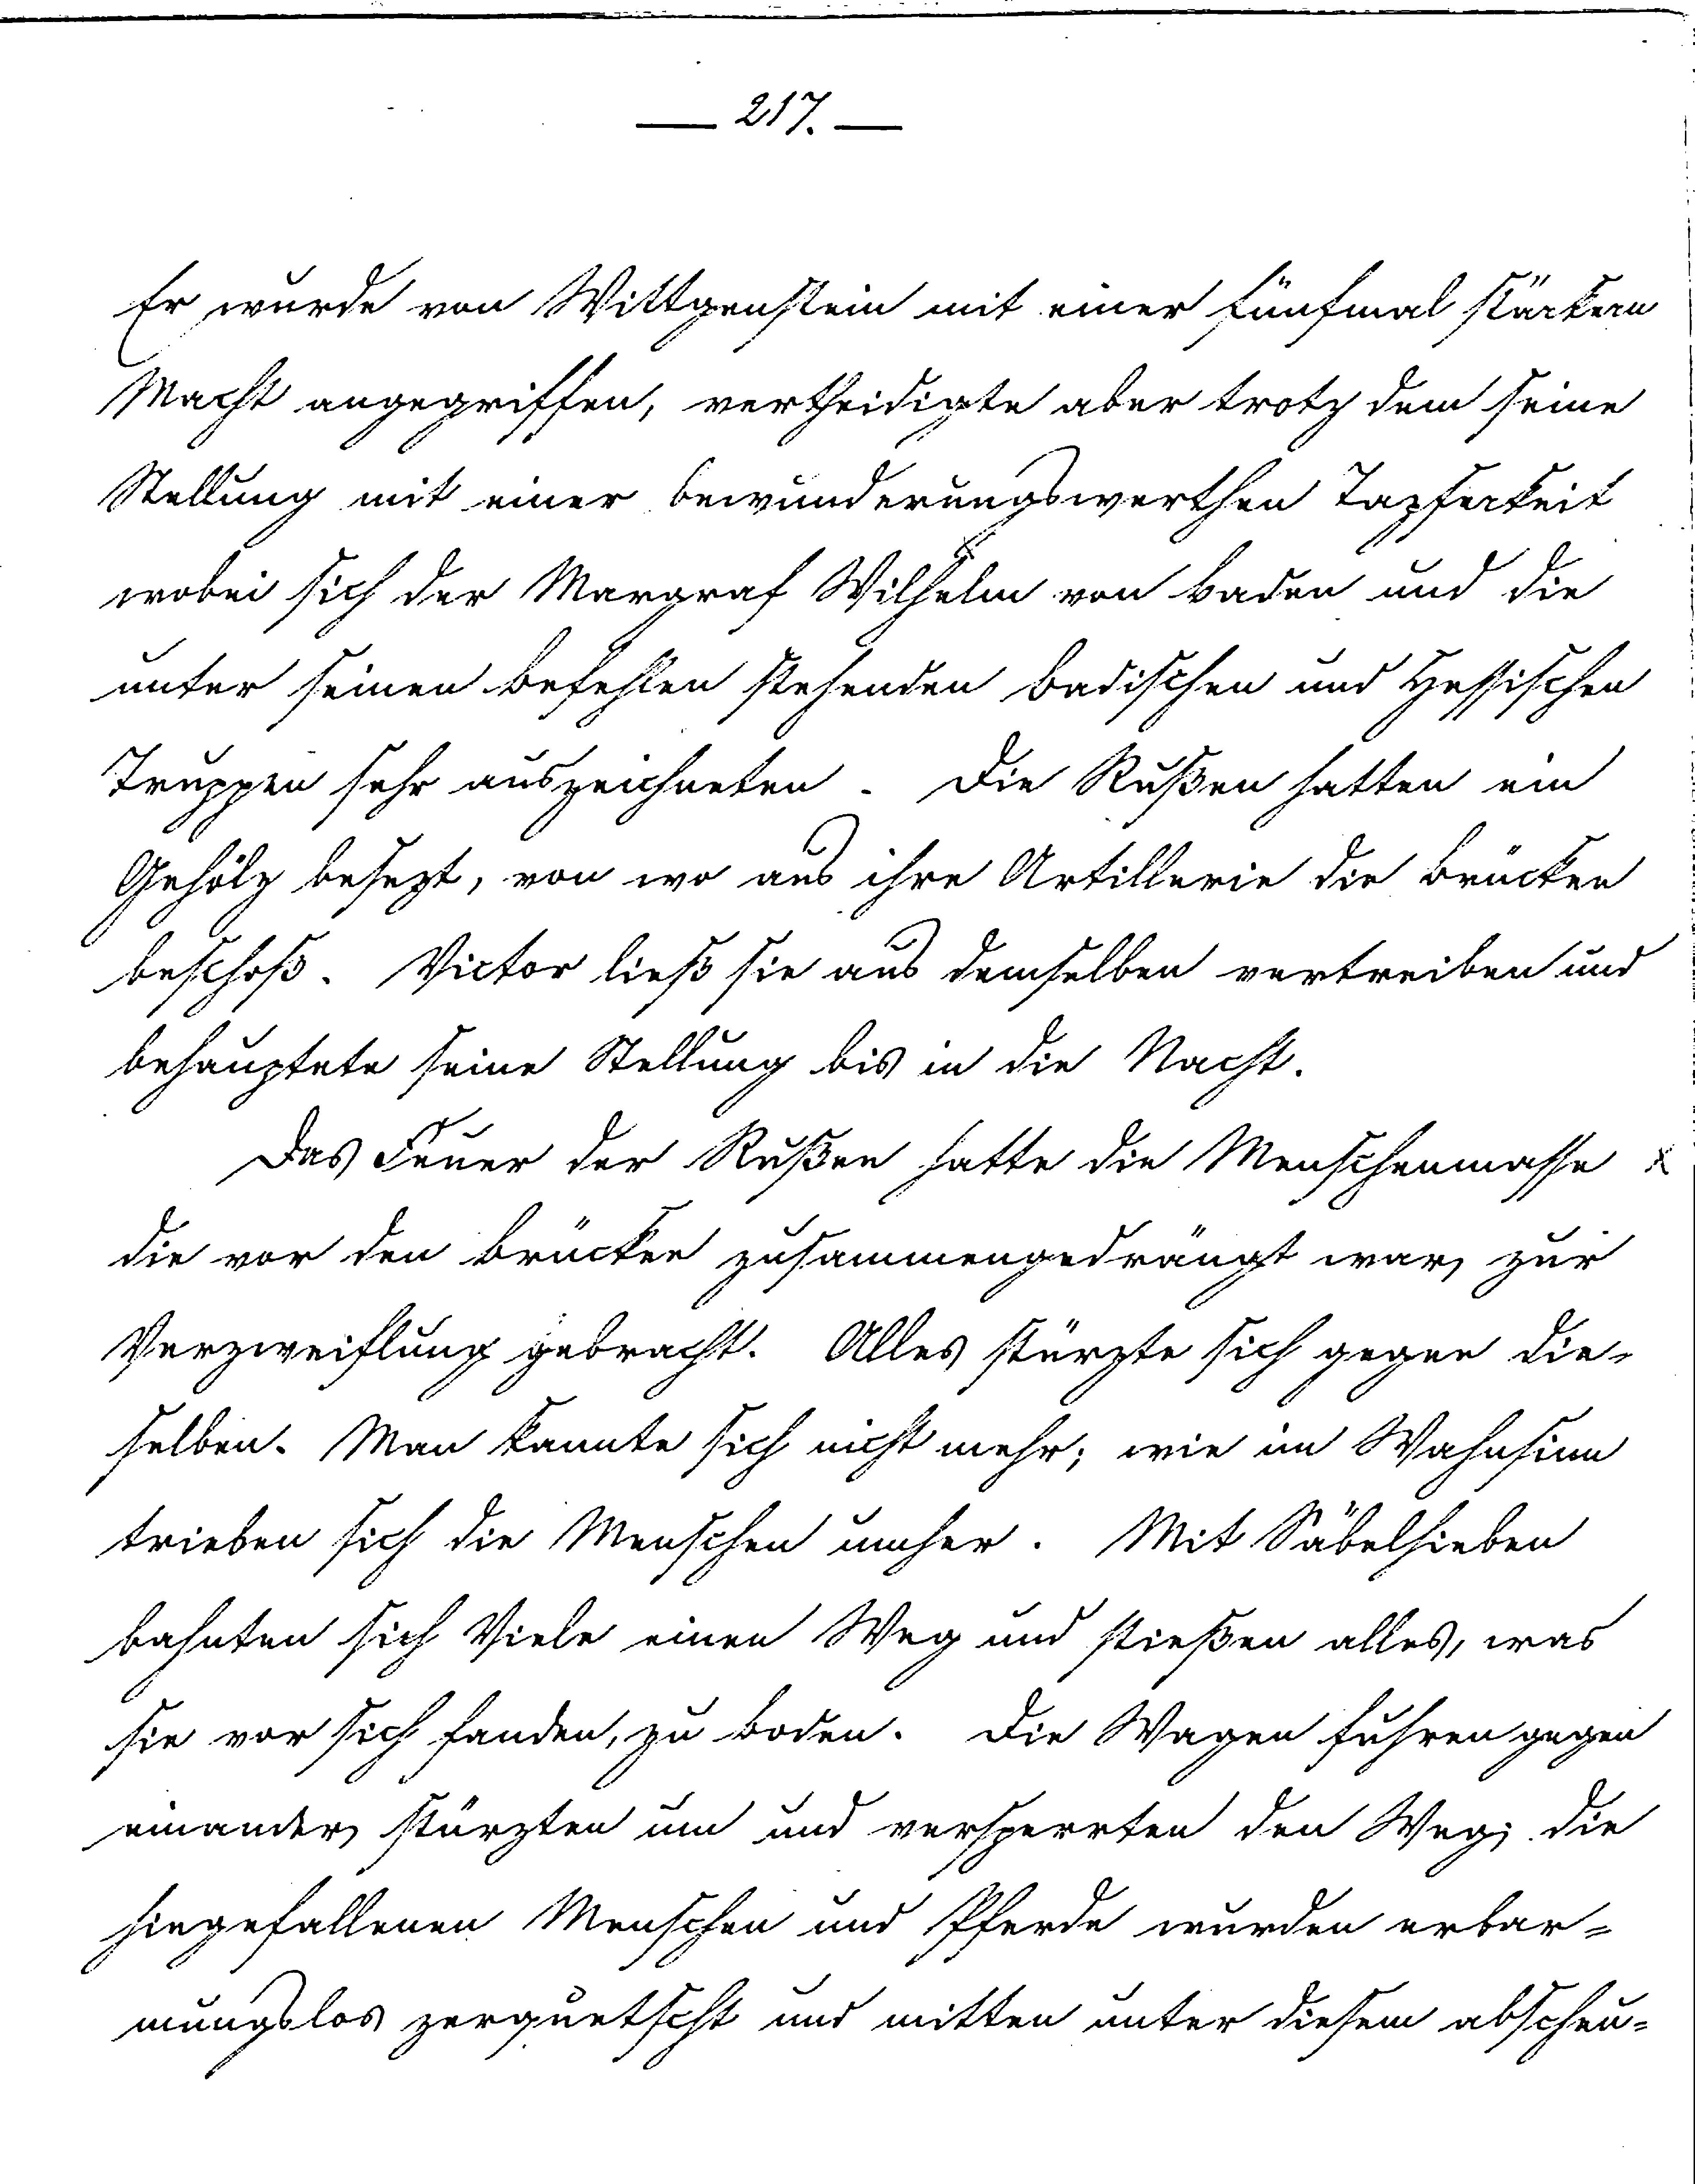 — 217. —
Er wurde von Wittgenstein mit einer fünfmal stärkern
Macht angegriffen, vertheidigte aber trotz dem seine
Stellung mit einer bewunderungswerthen Tapferkeit
wobei sich der Margraf Wilhelm von Baden und die
unter seinen Befehlen stehenden Badischen und Hessischen
Truppen sehr auszeichneten. Die Rußen hatten ein
Gehölz besezt, von wo aus ihre Artillerie die Brücken
beschoß. Victor ließ sie aus demselben vertreiben und
behauptete seine Stellung bis in die Nacht.
Das Feuer der Rußen hatte die Menschenmasse x
die vor den Brücken zusammengedrängt war, zur
Verzweiflung gebracht. Alles stürzte sich gegen die-
selben. Man kannte sich nicht mehr; wie im Wahnsinn
trieben sich die Menschen umher. Mit Säbelhieben
bahnten sich Viele einen Weg und stießen alles, was
sie vor sich fanden, zu Boden. Die Wagen fuhren gegen
einander, stürzten um und versperrten den Weg; die
hingefallenen Menschen und Pferde wurden erbar=
mungslos zerquetscht und mitten unter diesem abscheu=